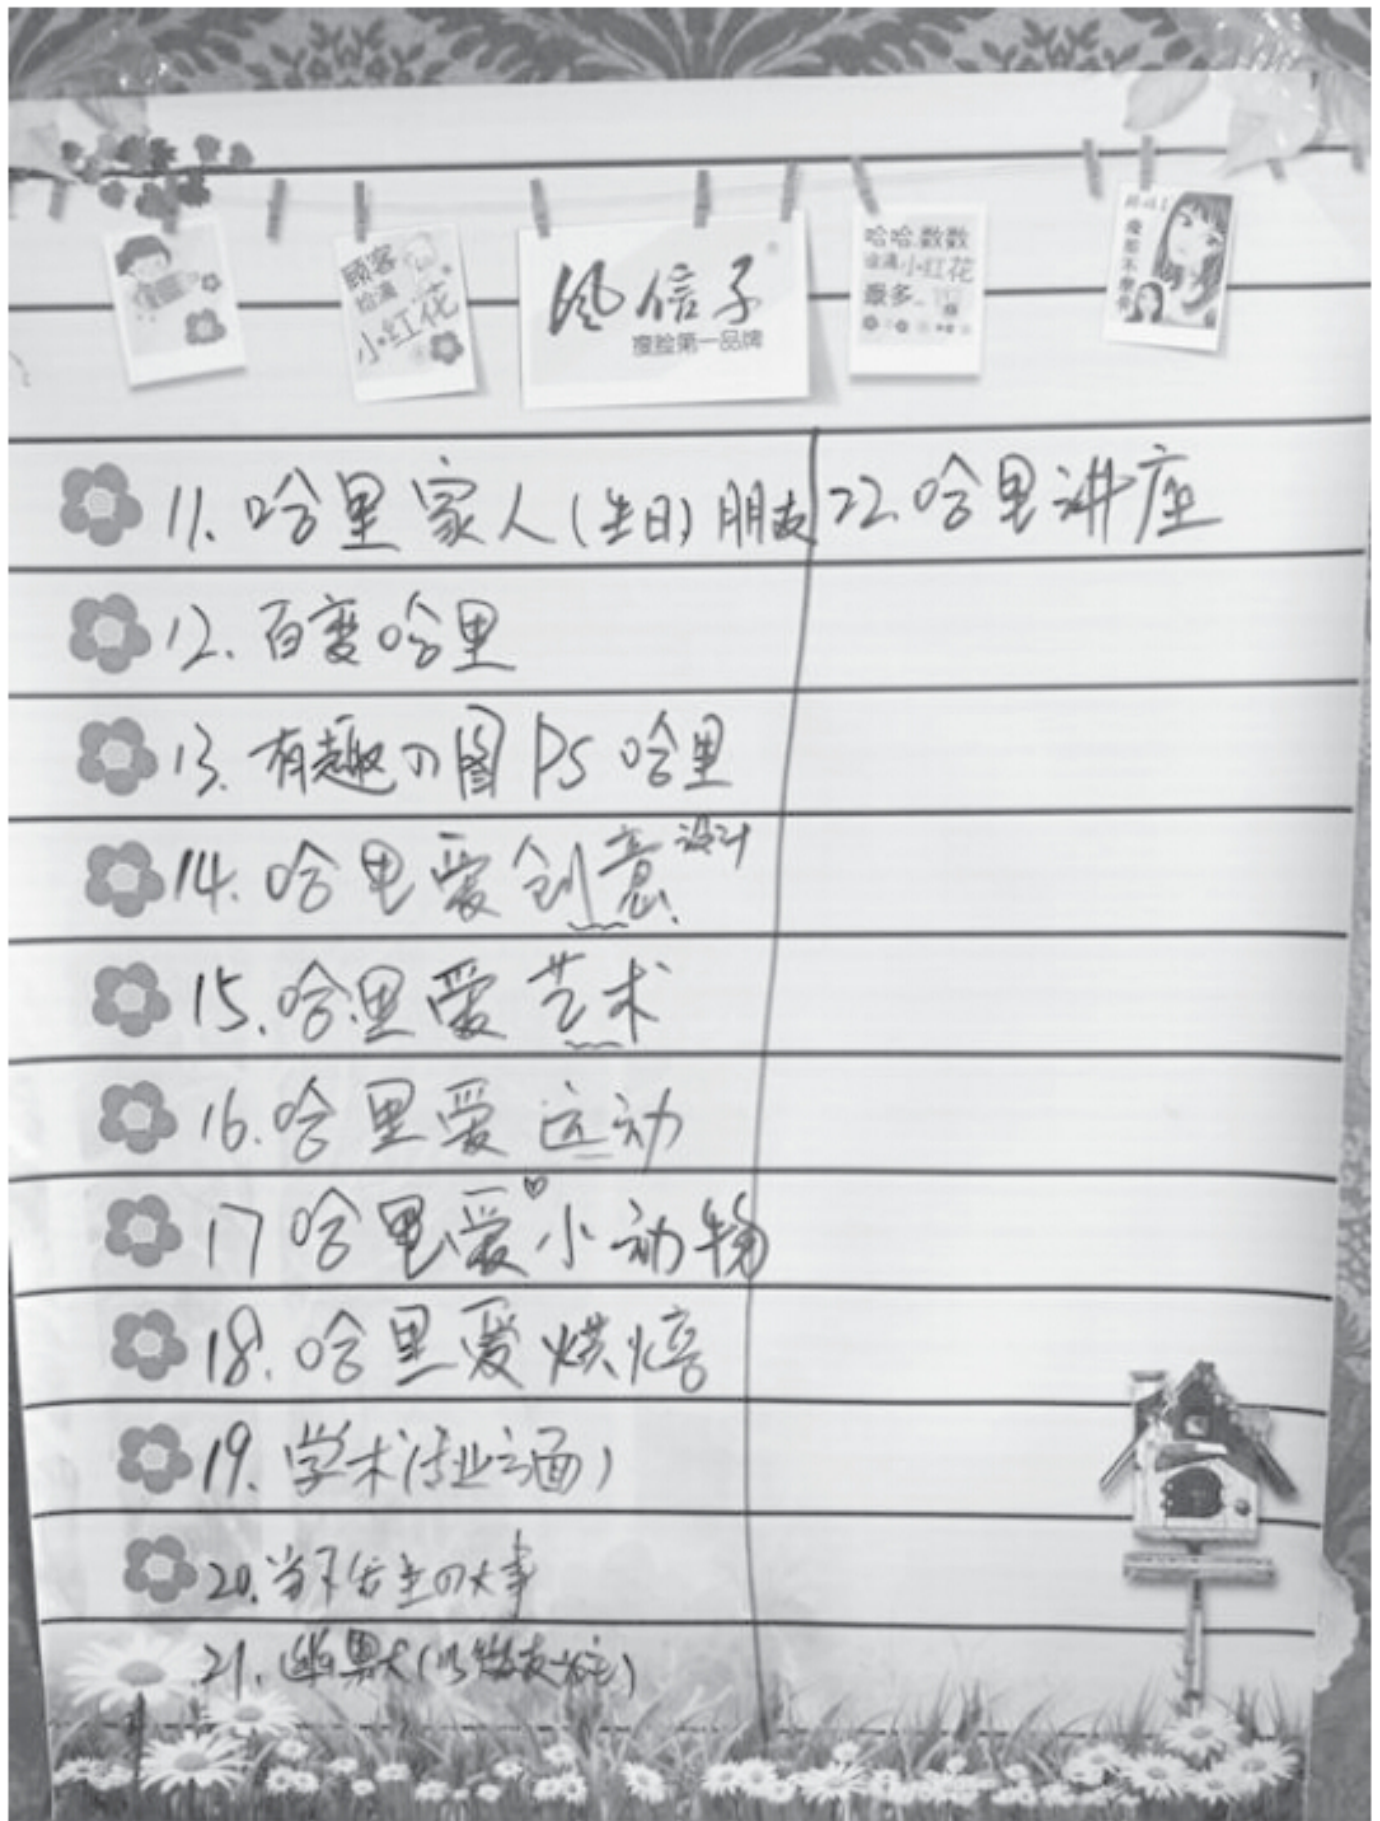 顾客
给满
小红花
风信子
瘦脸第一品牌
哈哈,数数
谁满小红花
最多
11. 哈里家人(生日)朋友
22. 哈里讲座
12. 百变哈里
13. 有趣の图 PS 哈里
14. 哈里爱创意设计
15. 哈里爱艺术
16. 哈里爱运动
17 哈里爱♡小动物
18. 哈里爱烘焙
19. 学术(专业方面)
20. 当下发生の大事
21. 幽默